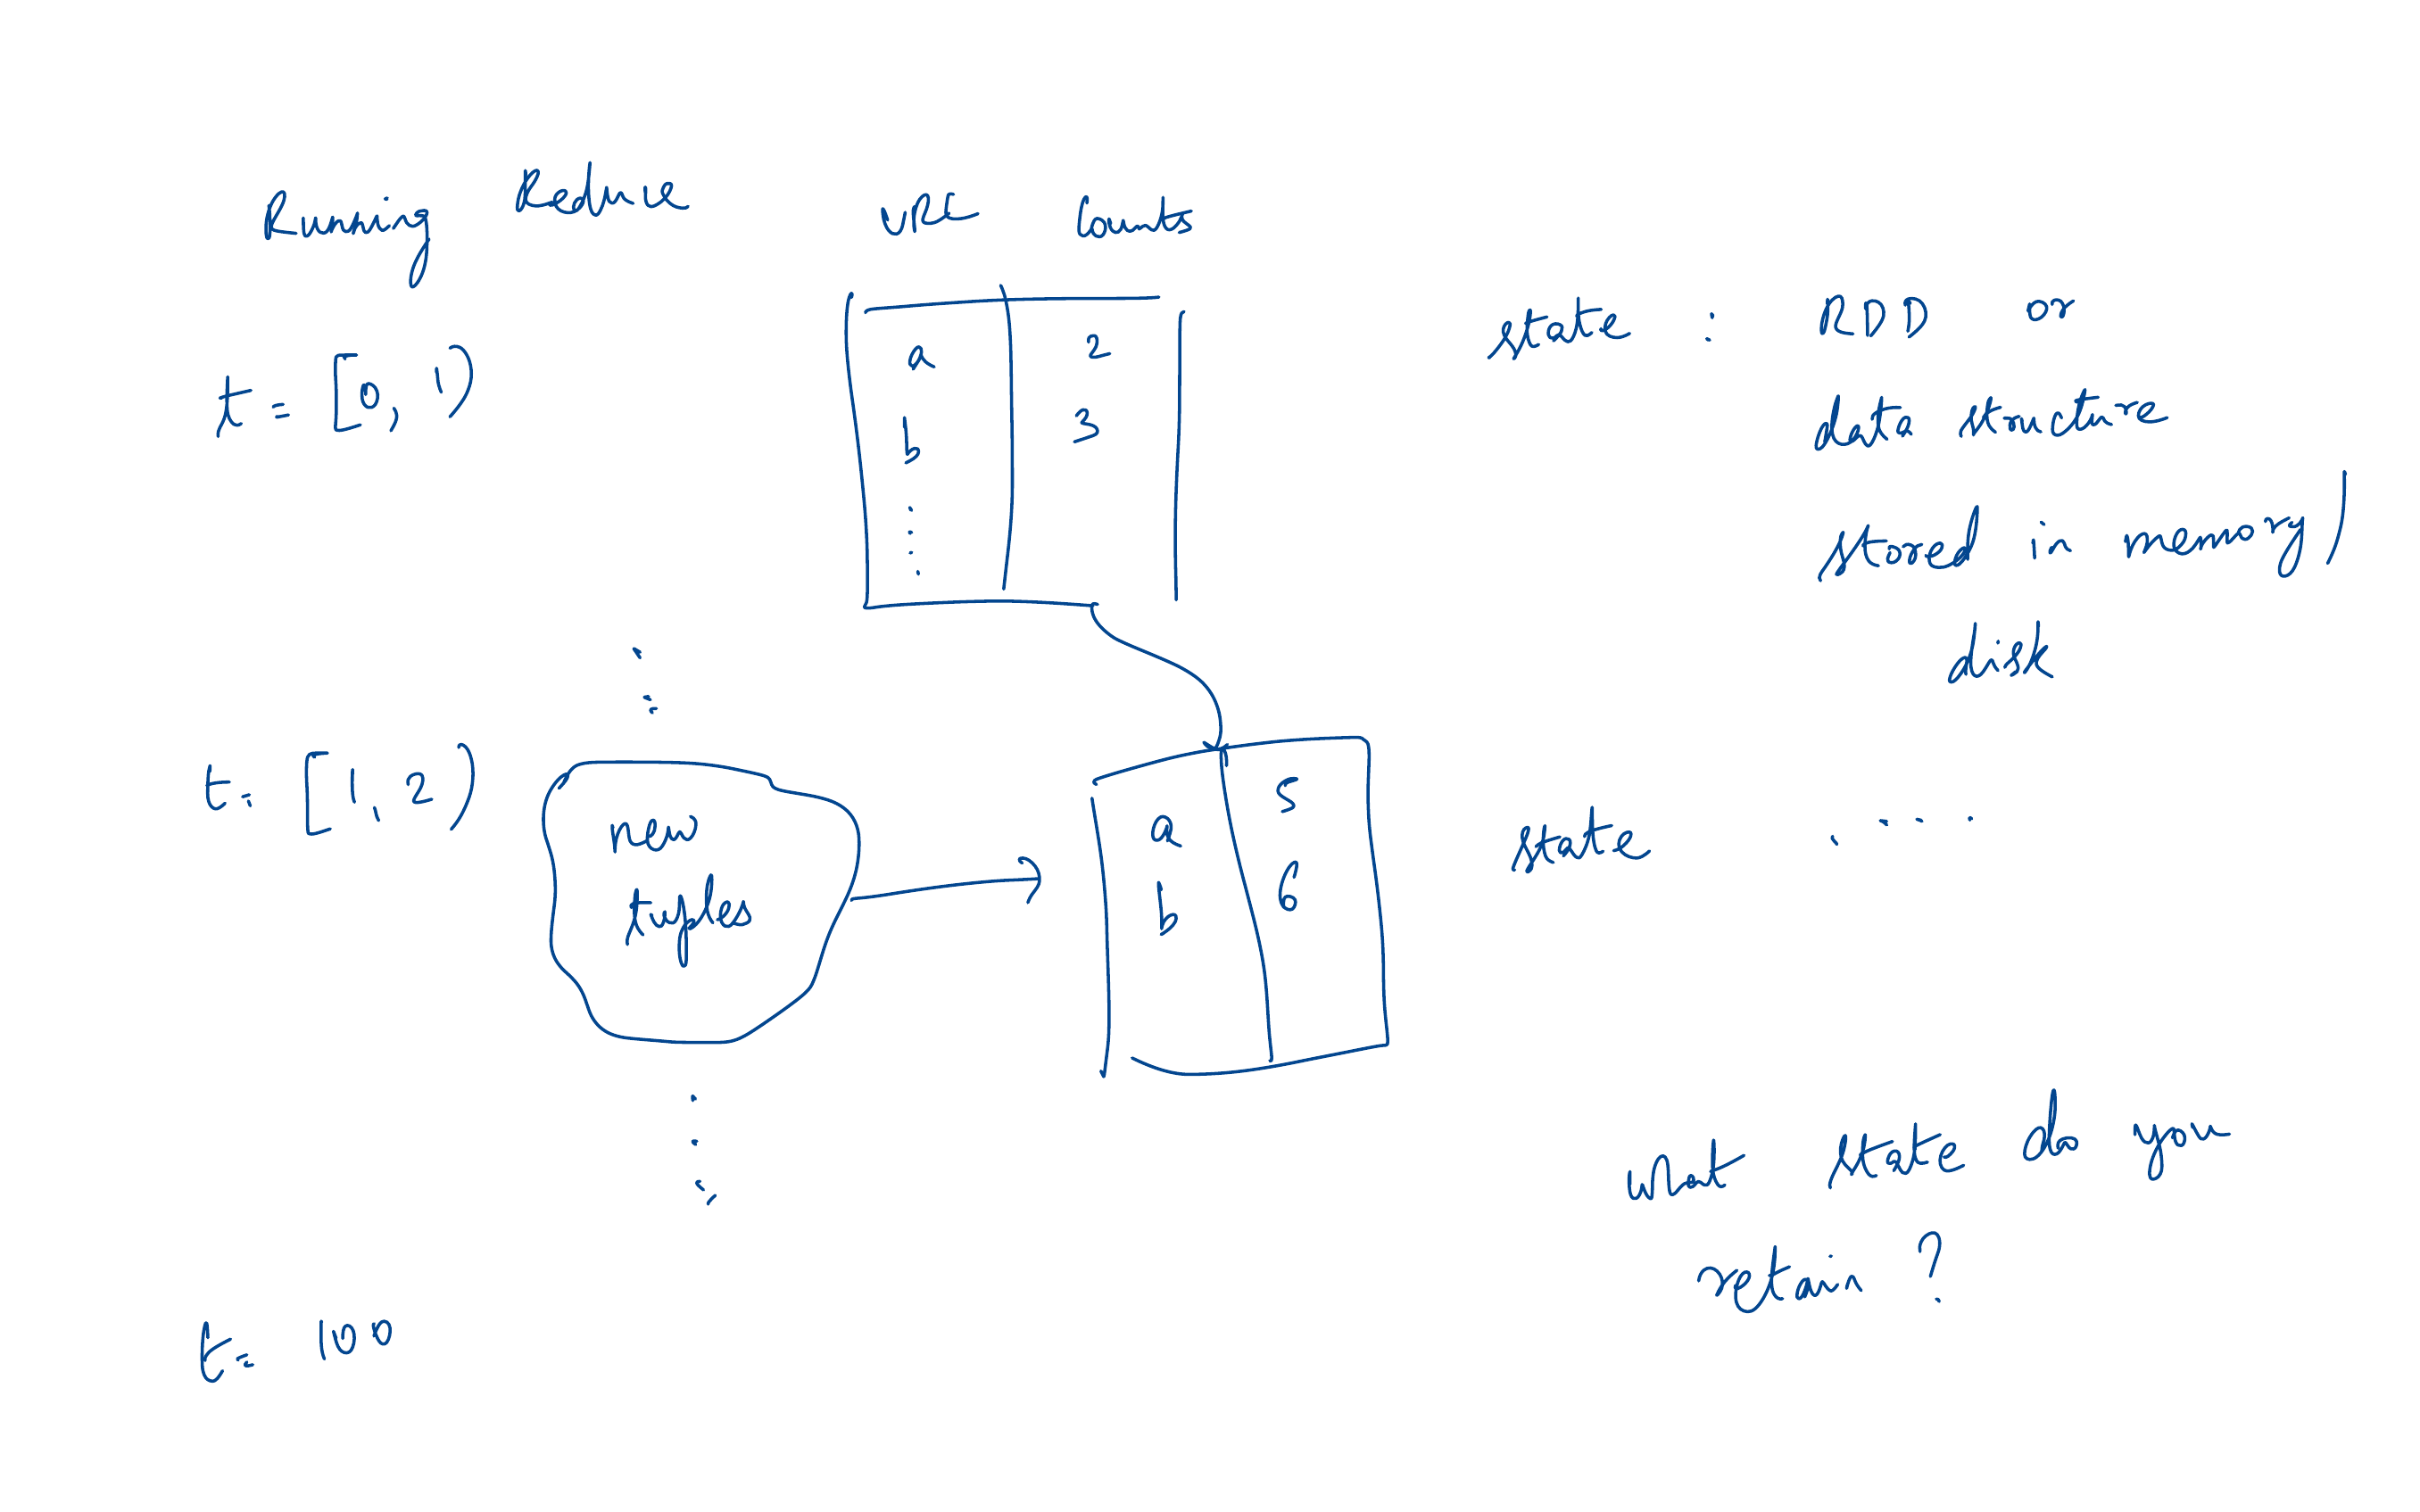 Running Reduce
URL Counts
t = [0, 1)
a 2
b 3
state : RDD or
data structure
stored in memory/
disk
t = [1, 2)
new
tuples
a 5
b 6
state ....
What state do you
retain ?
t = 100